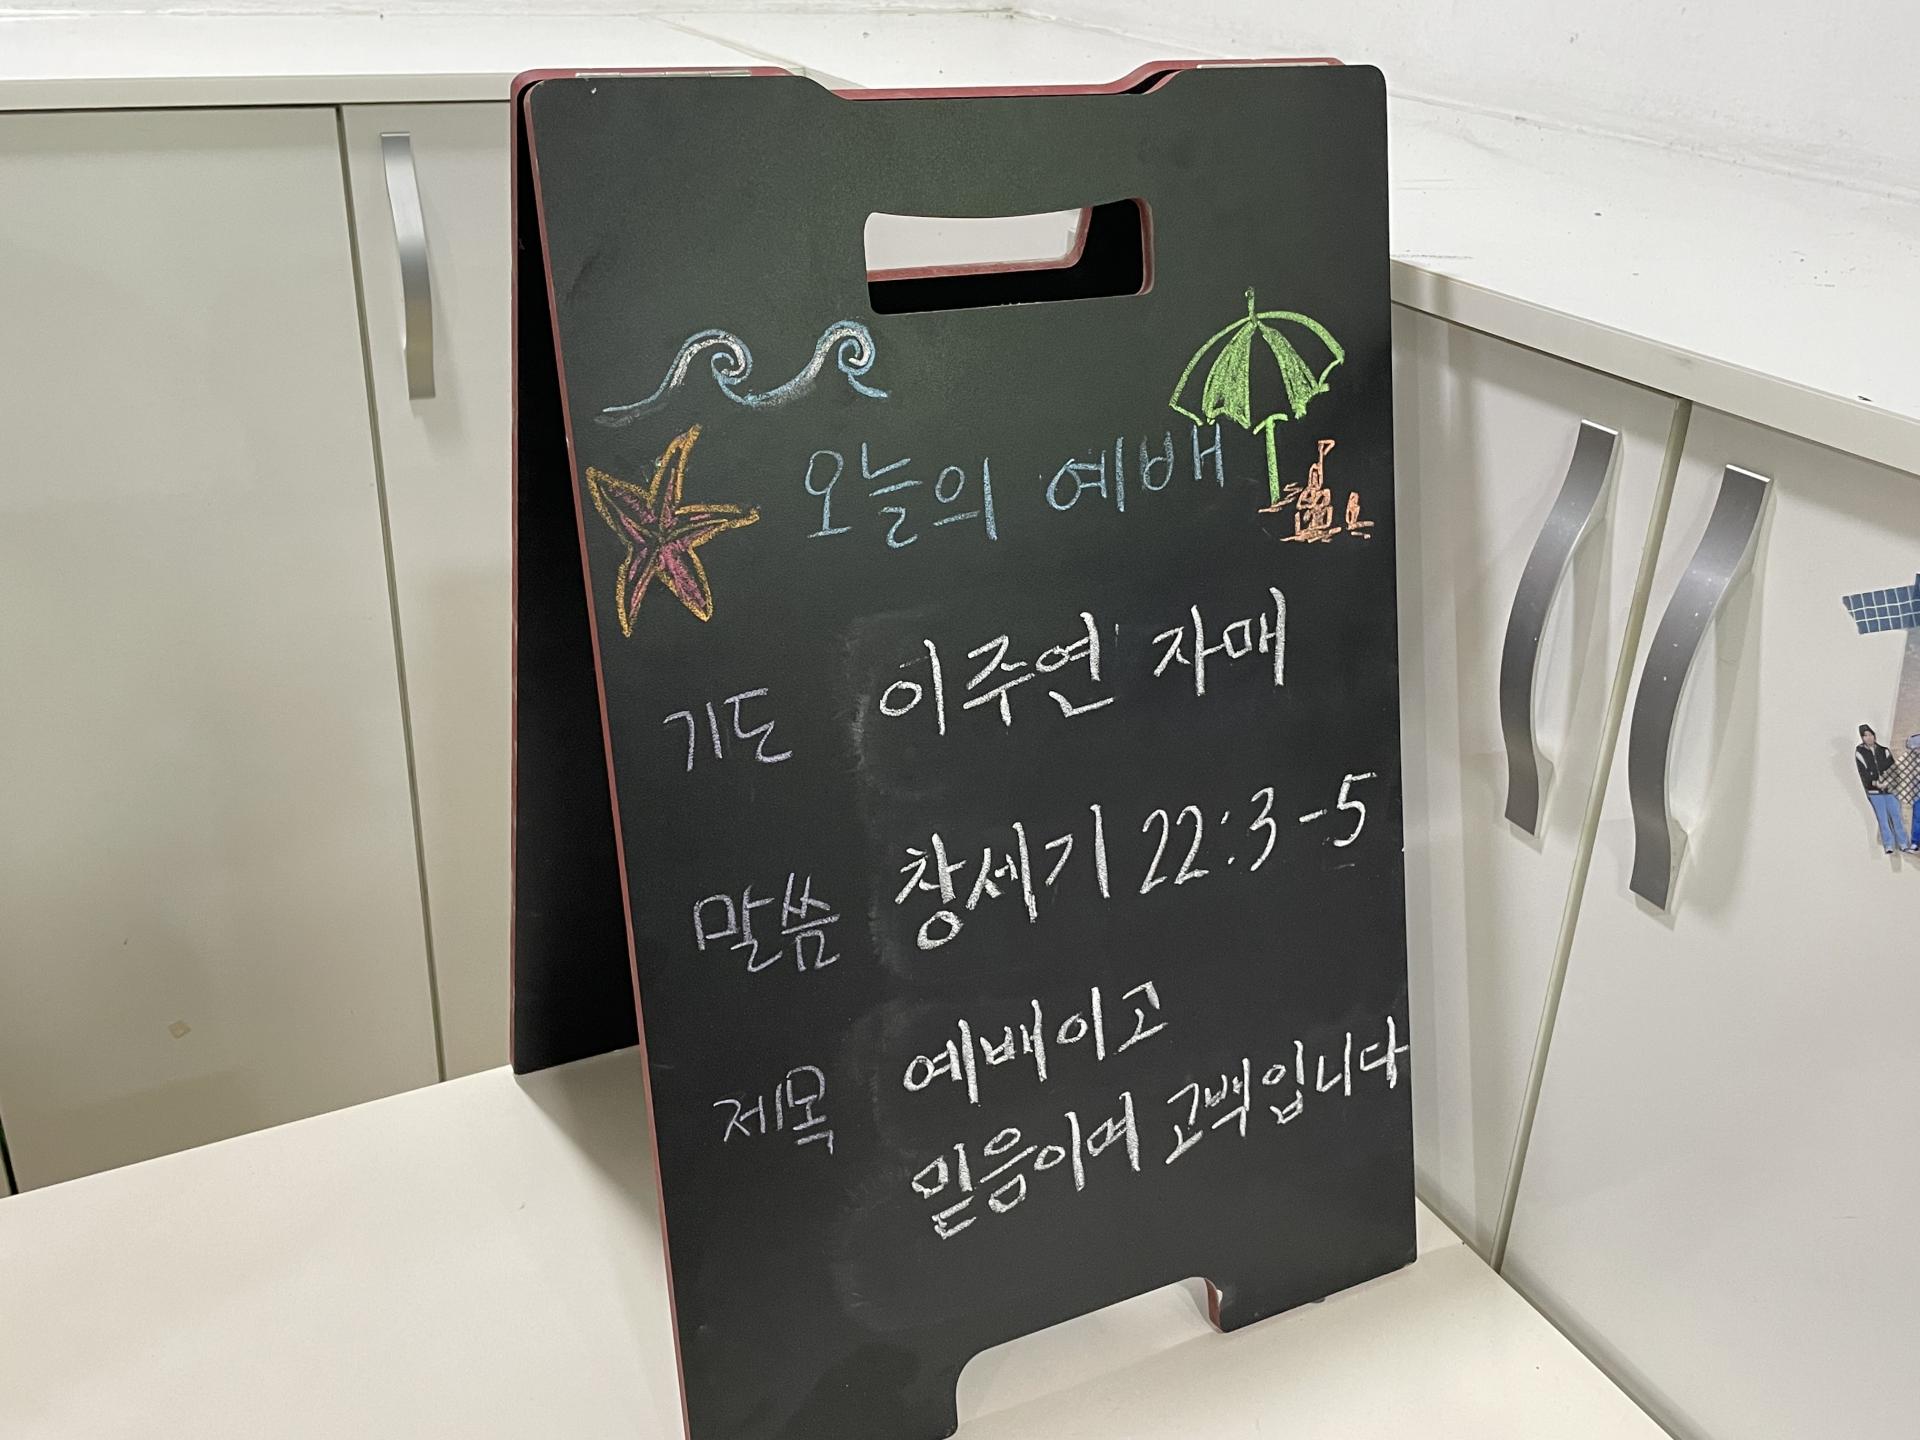 오늘의 예배
기도 이주연 자매
말씀 창세기 22:3-5
제목 예배이고
믿음이며 고백입니다